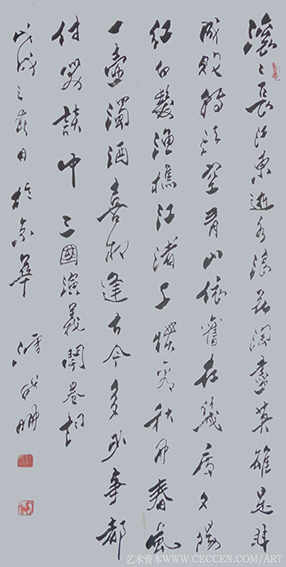 滚々长江东逝水浪花淘尽英雄是非
成败转头空青山依旧在几度夕阳
红白发渔樵江渚上惯看秋月春风
一壶浊酒喜相逢古今多少事都
付笑谈中 三国演义开卷词
戊戌之春日于京华
艺术资本WWW.CECCEN.COM/ART